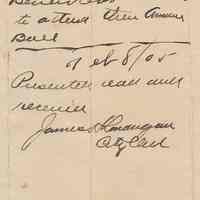 to attend their Annual
Ball
Feb 8/05
Presented read and
received
James
City Clerk